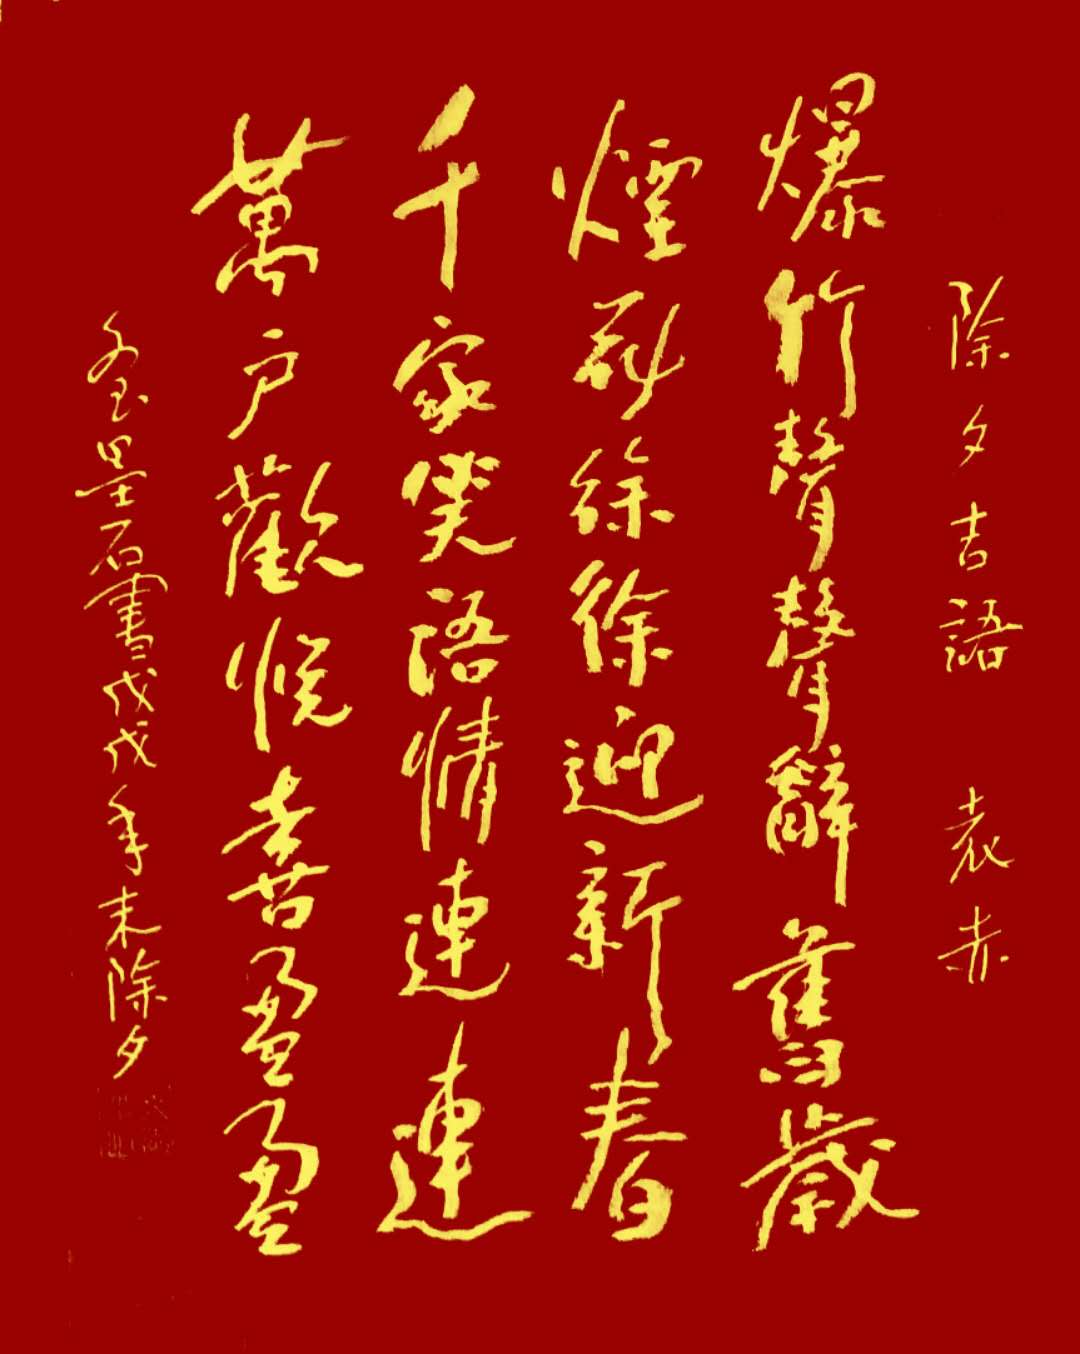 除夕吉語 袁赤
爆竹聲聲辭舊歲
煙花徐徐迎新春
千家笑語情連連
萬戶歡悅喜盈盈
墨石書戊戌年末除夕